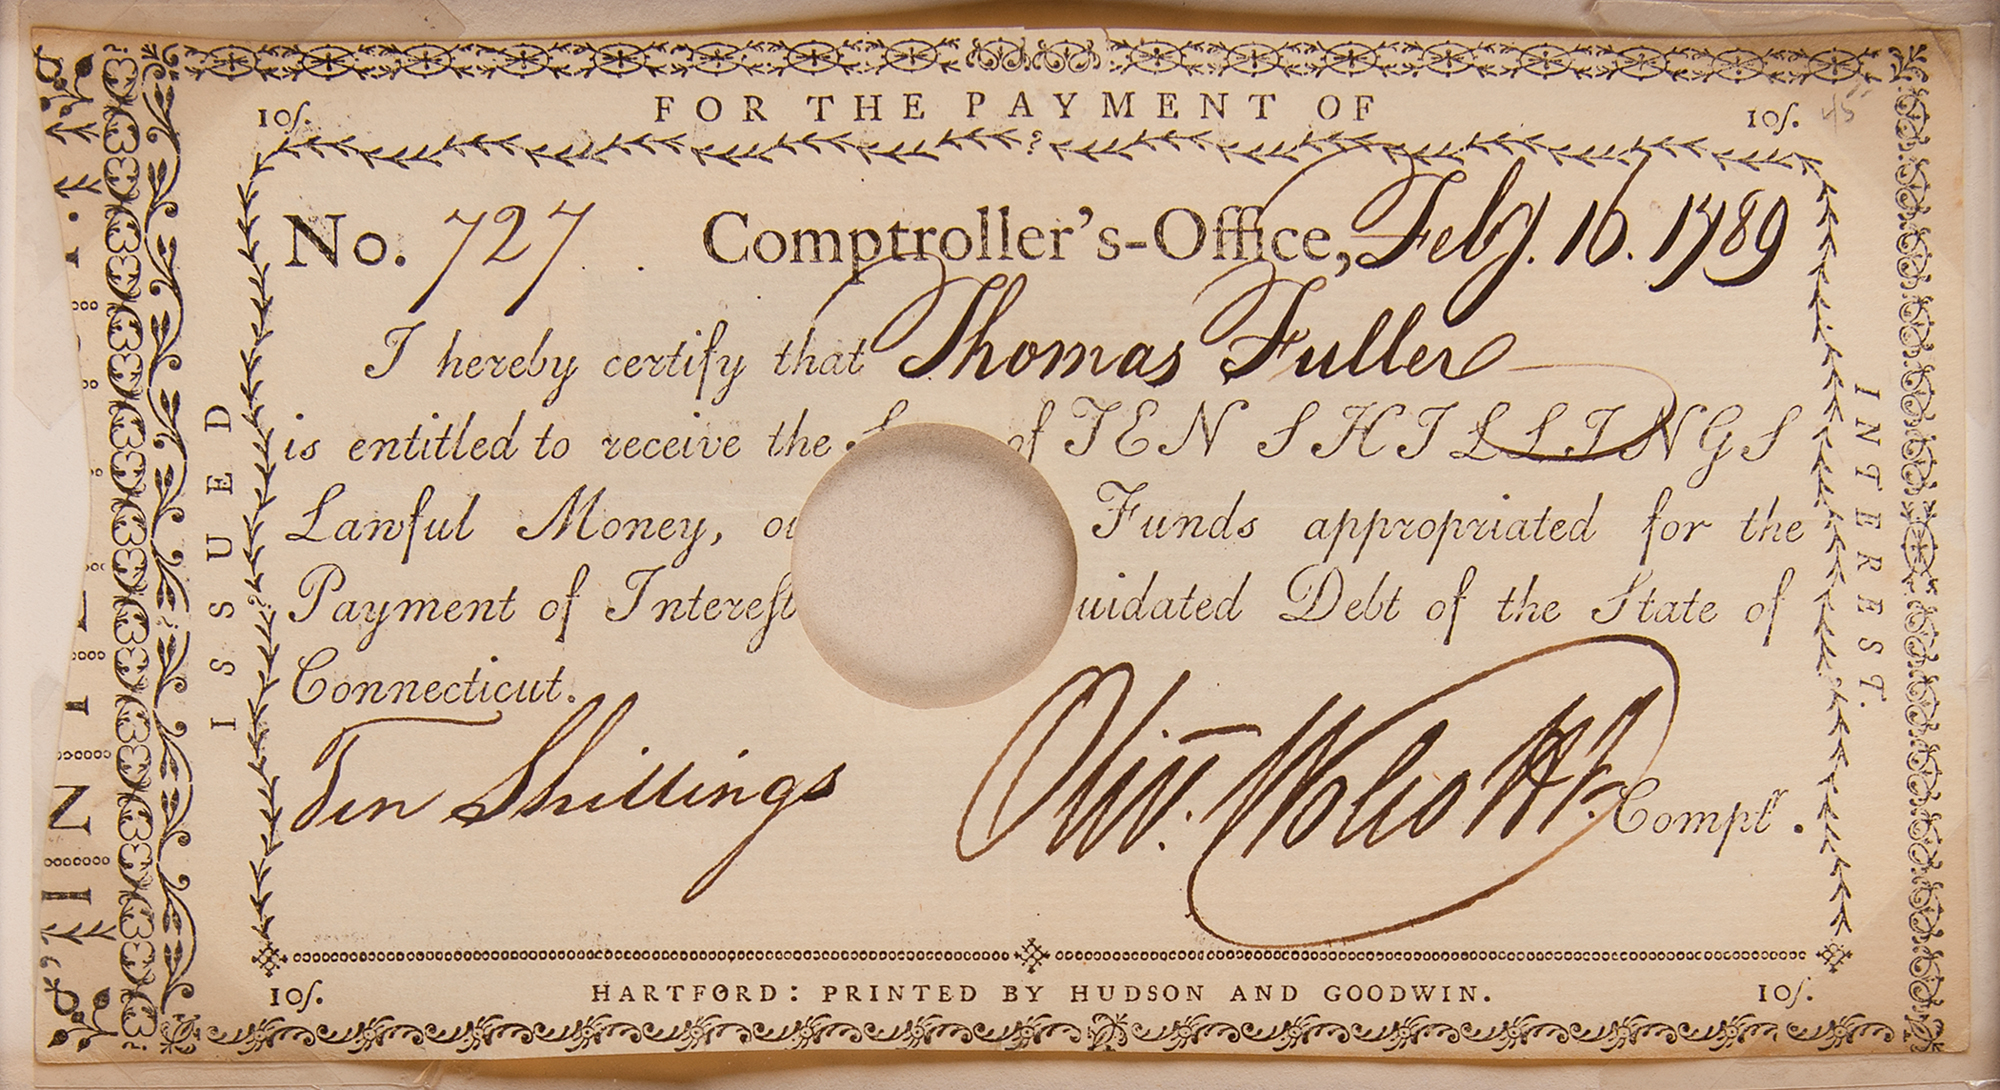 FOR THE PAYMENT OF
10ſ. 10ſ. 45
No. 727 Comptroller's-Office, Feby. 16. 1789
I hereby certify that Thomas Fuller
is entitled to receive the of TEN SHILLINGS
Lawful Money, Funds appropriated for the
Payment of Intereſt uidated Debt of the State of
Connecticut.
Ten Shillings Olivr. Wolcott Jr. Comptr.
10ſ. HARTFORD: PRINTED BY HUDSON AND GOODWIN. 10ſ.
ISSUED
INTEREST.